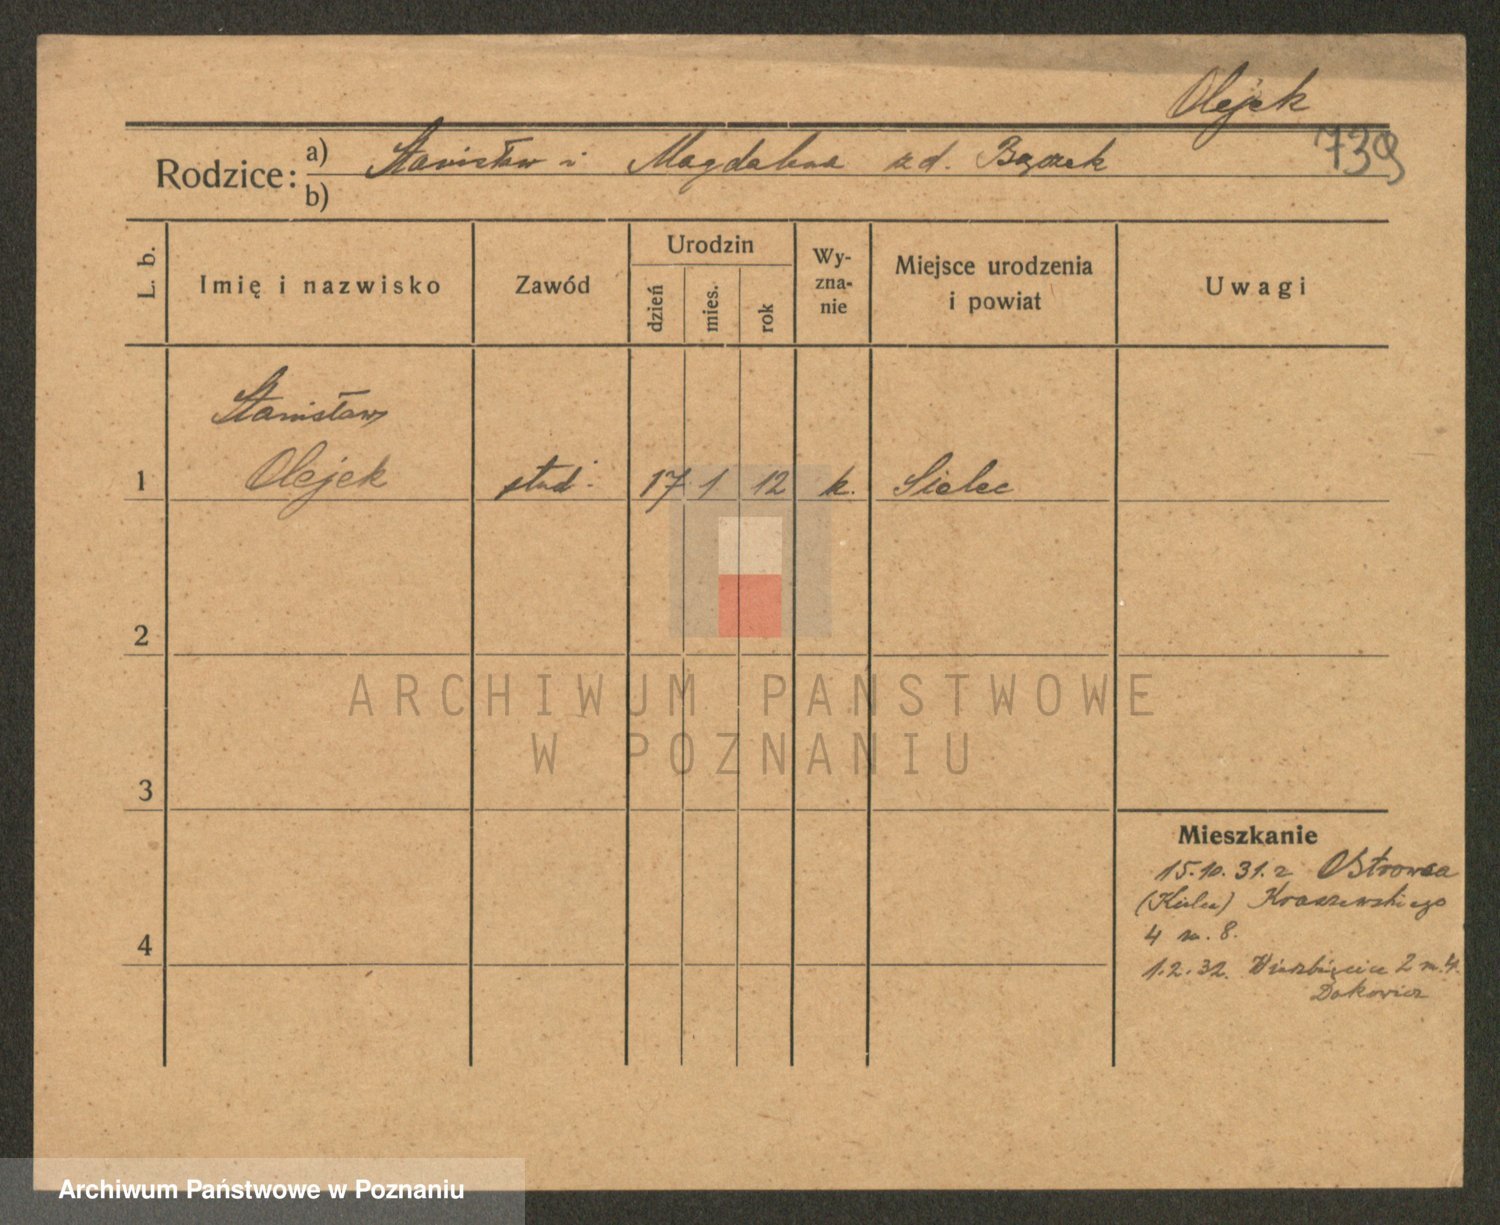 Olejek
739
Rodzice: a) Stanisław i Magdalena zd. Bączek
b)
L. b.
Imię i nazwisko
Zawód
Urodzin
dzień
mies.
rok
Wy-
zna-
nie
Miejsce urodzenia
i powiat
Uwagi
Stanisław
1 Olejek stud. 17 1 12 k. Sielec
2
3
4
Mieszkanie
15.10.31. z Ostrowca
(Kielce) Kraszewskiego
4 m. 8.
1.2.32. Wierzbięcice 2 m. 4.
ARCHIWUM PAŃSTWOWE
W POZNANIU
Archiwum Państwowe w Poznaniu